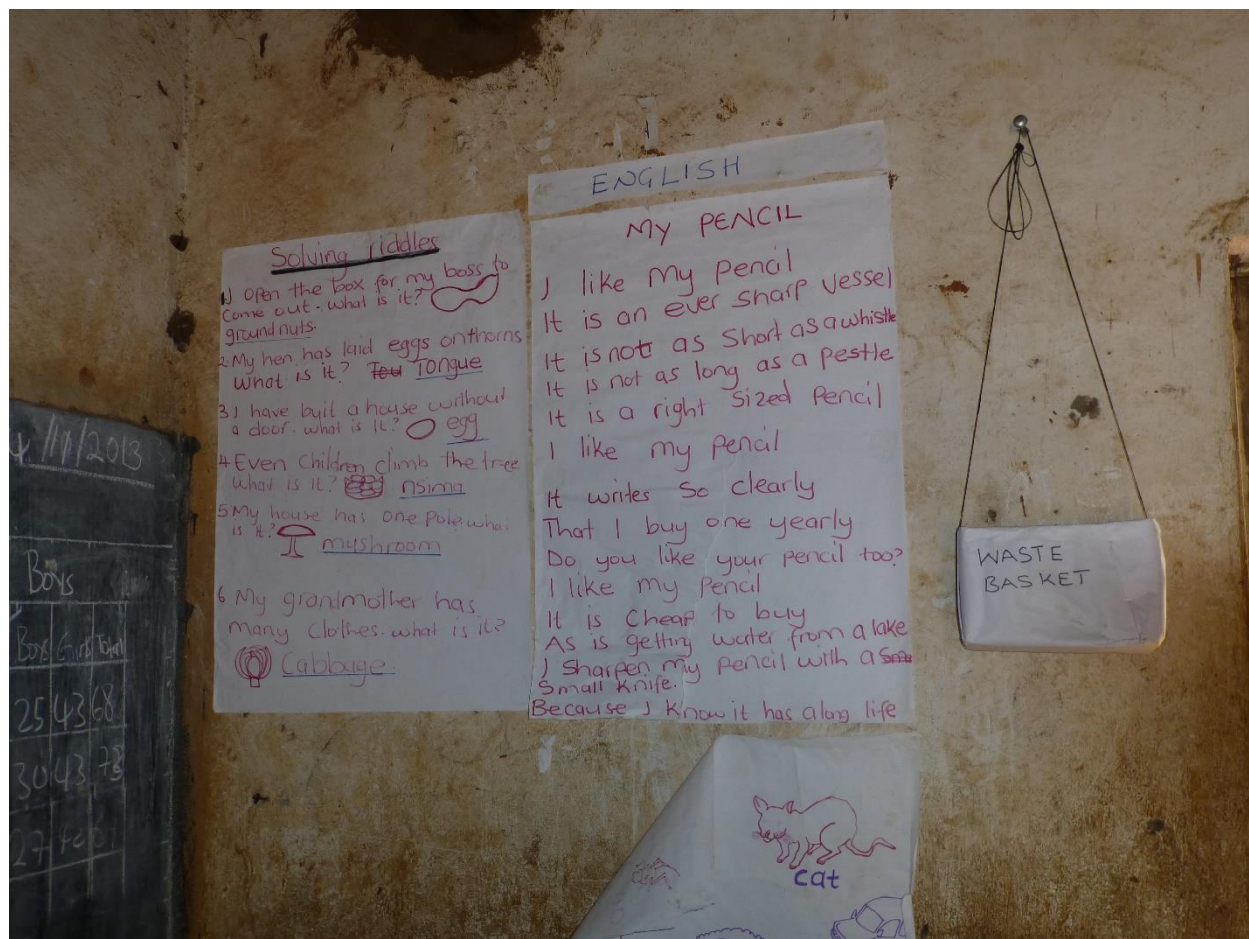 4/11/2013
Boys
Boys Girls Total
25 43 68
30 43 73
27
Solving riddles
1 Open the box for my boss to
come out. what is it?
groundnuts.
2. My hen has laid eggs on thorns
What is it? Tongue
3 I have buit a house without
a door. what is it? egg
4 Even Children climb the tree
what is it? nsima
5 My house has one pole. what
is it? mushroom
6 My grandmother has
many Clothes. what is it?
Cabbage.
ENGLISH
My PENCIL
I like my pencil
It is an ever sharp vessel
It is not as short as a whistle
It is not as long as a pestle
It is a right sized pencil
I like my pencil
It writes so clearly
That I buy one yearly
Do you like your pencil too?
I like my pencil
It is cheap to buy
As is getting water from a lake
I sharpen my pencil with a
Small knife.
Because I know it has a long life
WASTE
BASKET
cat